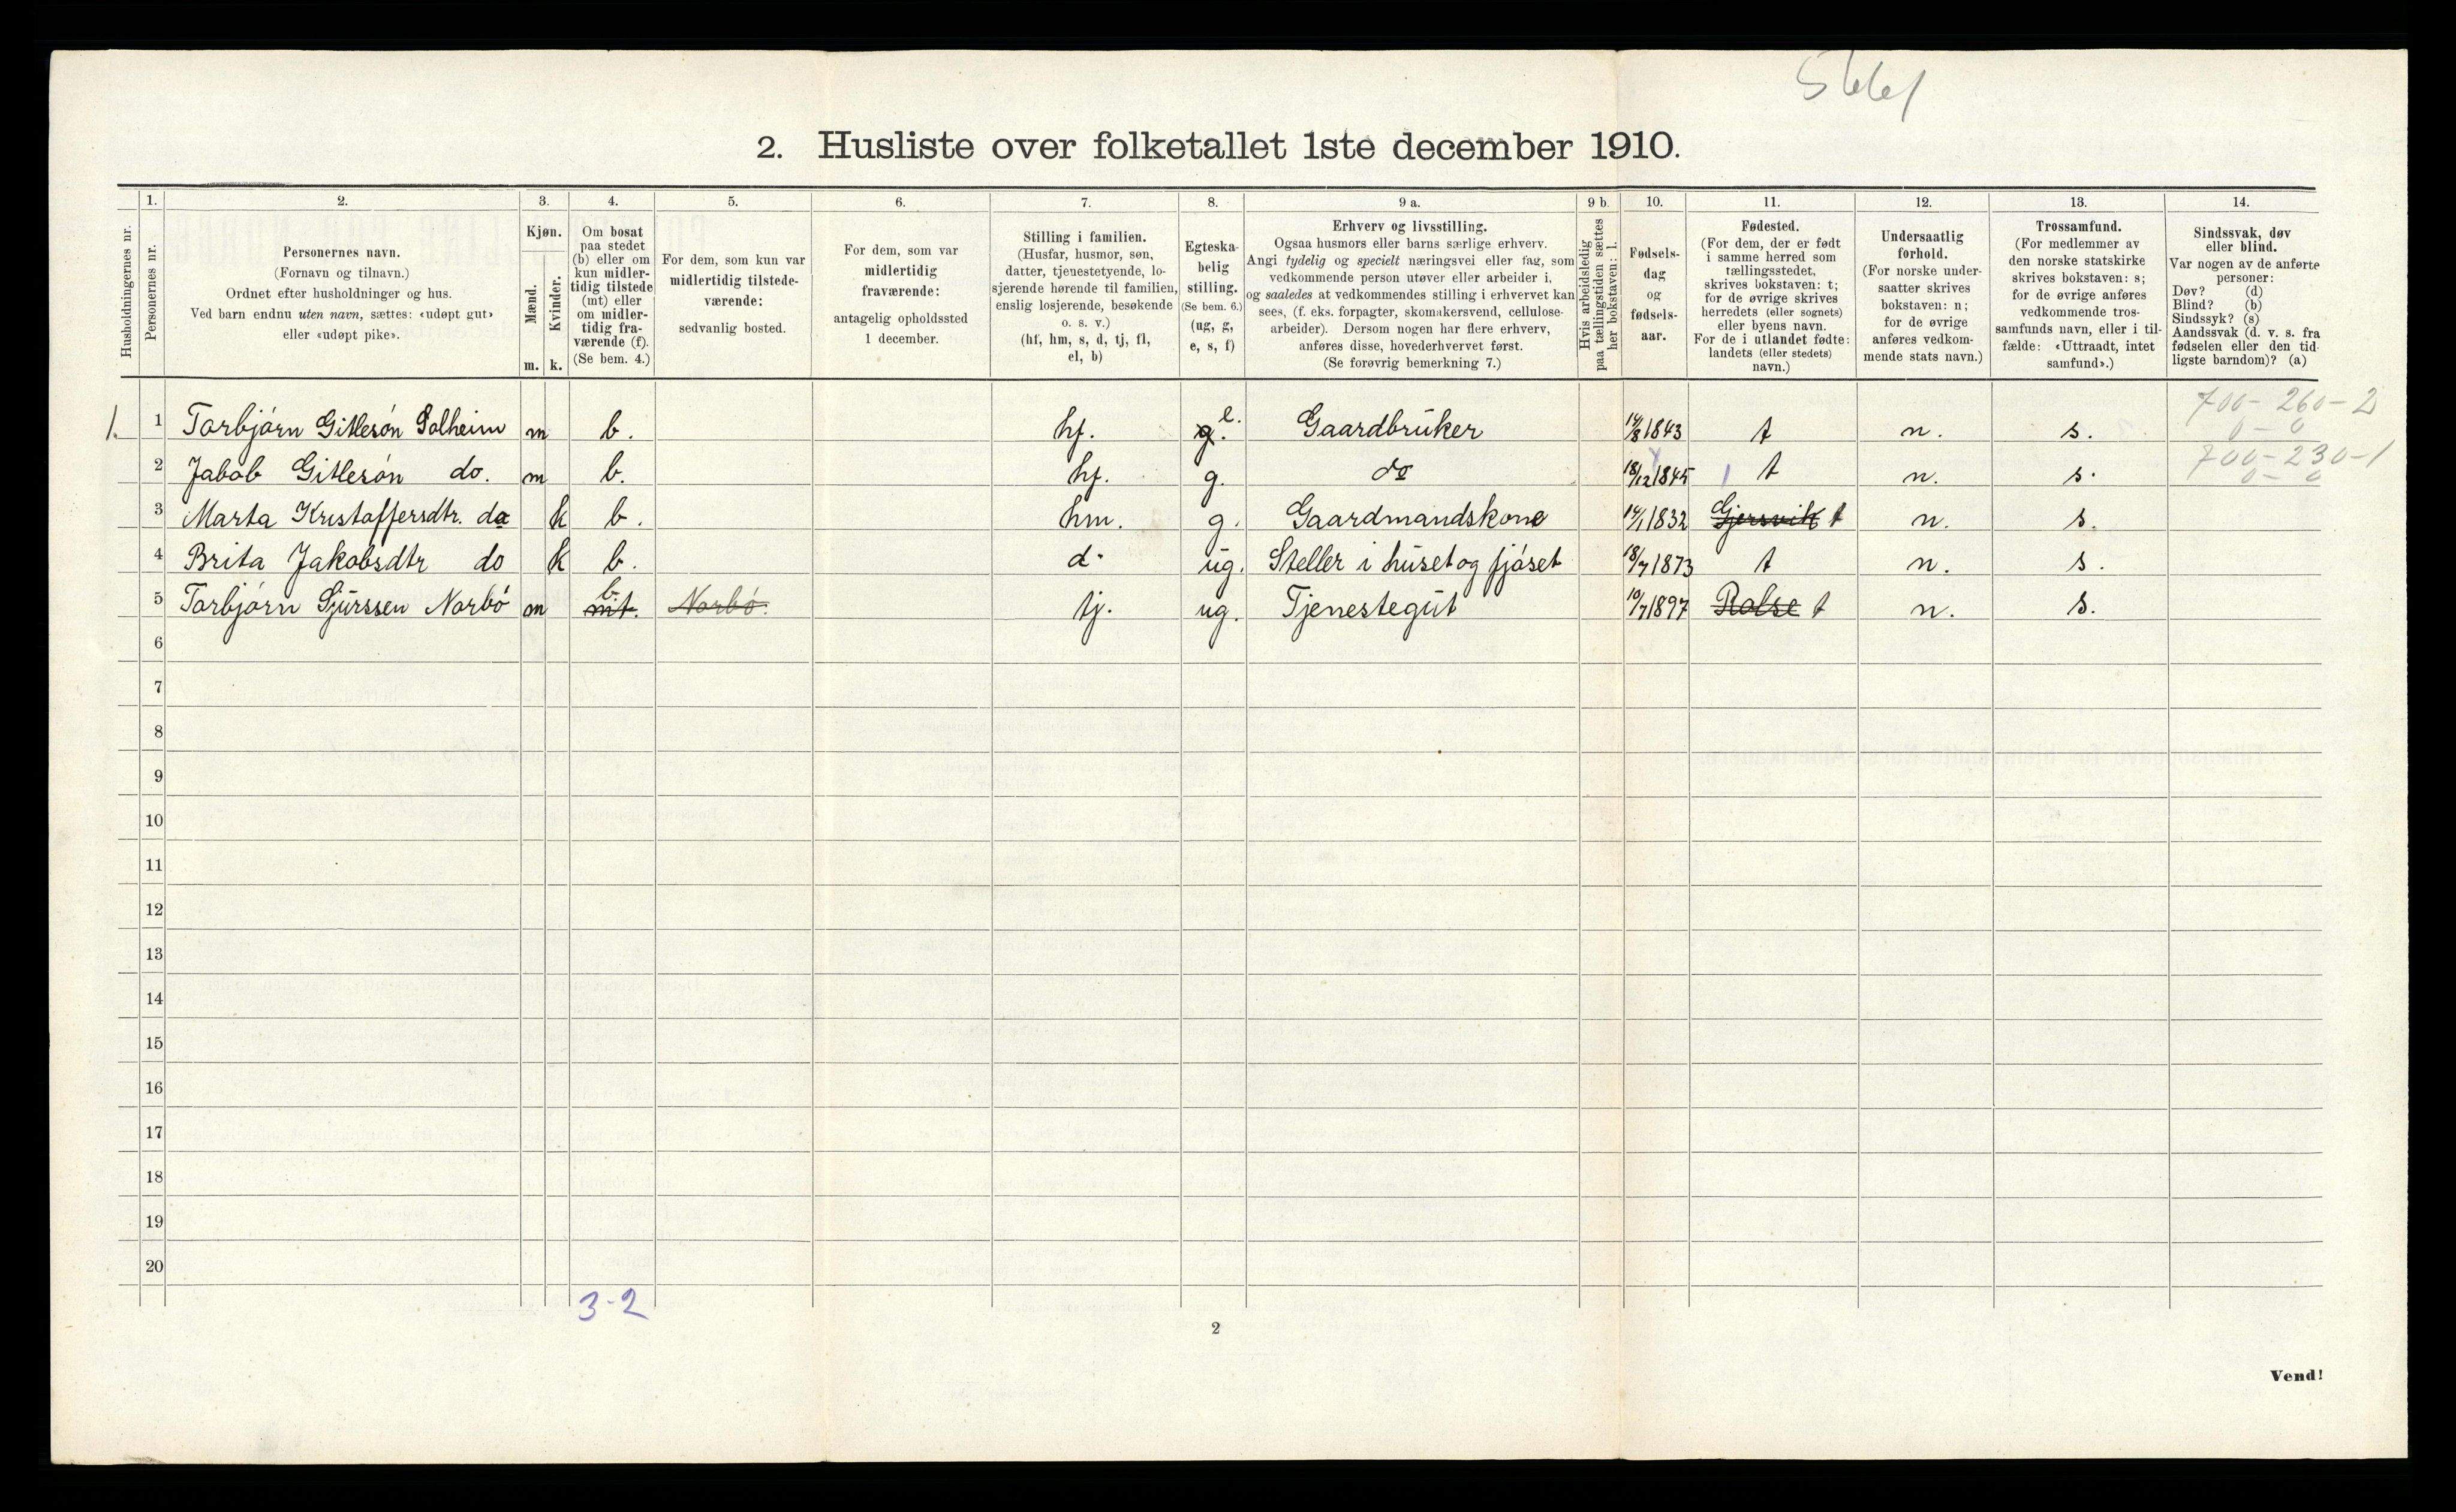 2. Husliste over folketallet 1ste december 1910.
Husholdningernes nr.
1.
Personernes nr.
2.
Personernes navn.
(Fornavn og tilnavn.)
Ordnet efter husholdninger og hus.
Ved barn endnu uten navn, sættes: «udøpt gut»
eller «udøpt pike».
3.
Kjøn.
Mænd.
Kvinder.
m. k.
4.
Om bosat
paa stedet
(b) eller om
kun midler-
tidig tilstede
(mt) eller
om midler-
tidig fra-
værende (f).
(Se bem. 4.)
5.
For dem, som kun var
midlertidig tilstede-
værende:
sedvanlig bosted.
6.
For dem, som var
midlertidig
fraværende:
antagelig opholdssted
1 december.
7.
Stilling i familien.
(Husfar, husmor, søn,
datter, tjenestetyende, lo-
sjerende hørende til familien,
enslig losjerende, besøkende
o. s. v.)
(hf, hm, s, d, tj, fl,
el, b)
8.
Egteska-
belig
stilling.
(Se bem. 6.)
(ug, g,
e, s, f)
9 a.
Erhverv og livsstilling.
Ogsaa husmors eller barns særlige erhverv.
Angi tydelig og specielt næringsvei eller fag, som
vedkommende person utøver eller arbeider i,
og saaledes at vedkommendes stilling i erhvervet kan
sees, (f. eks. forpagter, skomakersvend, cellulose-
arbeider). Dersom nogen har flere erhverv,
anføres disse, hovederhvervet først.
(Se forøvrig bemerkning 7.)
9 b.
Hvis arbeidsledig
paa tællingstiden sættes
her bokstaven: l.
10.
Fødsels-
dag
og
fødsels-
aar.
11.
Fødested.
(For dem, der er født
i samme herred som
tællingsstedet,
skrives bokstaven: t;
for de øvrige skrives
herredets (eller sognets)
eller byens navn.
For de i utlandet fødte:
landets (eller stedets)
navn.)
12.
Undersaatlig
forhold.
(For norske under-
saatter skrives
bokstaven: n;
for de øvrige
anføres vedkom-
mende stats navn.)
13.
Trossamfund.
(For medlemmer av
den norske statskirke
skrives bokstaven: s;
for de øvrige anføres
vedkommende tros-
samfunds navn, eller i til-
fælde: «Uttraadt, intet
samfund».)
14.
Sindssvak, døv
eller blind.
Var nogen av de anførte
personer:
Døv? (d)
Blind? (b)
Sindssyk? (s)
Aandssvak (d. v. s. fra
fødselen eller den tid-
ligste barndom)? (a)
1. 1 Torbjørn Gitlesøn Solheim m b. hf. g. e. Gaardbruker 14/8 1843 t n. s. 700-260-2
0-0
2 Jabob Gitlesøn do. m b. hf. g. do 18/12 1845 t n. s. 700-230-1
0-0
3 Marta Kristoffersdtr. do k b. hm. g. Gaardmandskone 14/1 1832 Gjersvik t n. s.
4 Brita Jakobsdtr do k b. d. ug. Steller i huset og fjøset 18/7 1873 t n. s.
5 Torbjørn Sjurssen Norbø m mt. b. Norbø. tj. ug. Tjenestegut 10/7 1897 Rolse t n. s.
6
7
8
9
10
11
12
13
14
15
16
17
18
19
20
3-2
2
Vend!